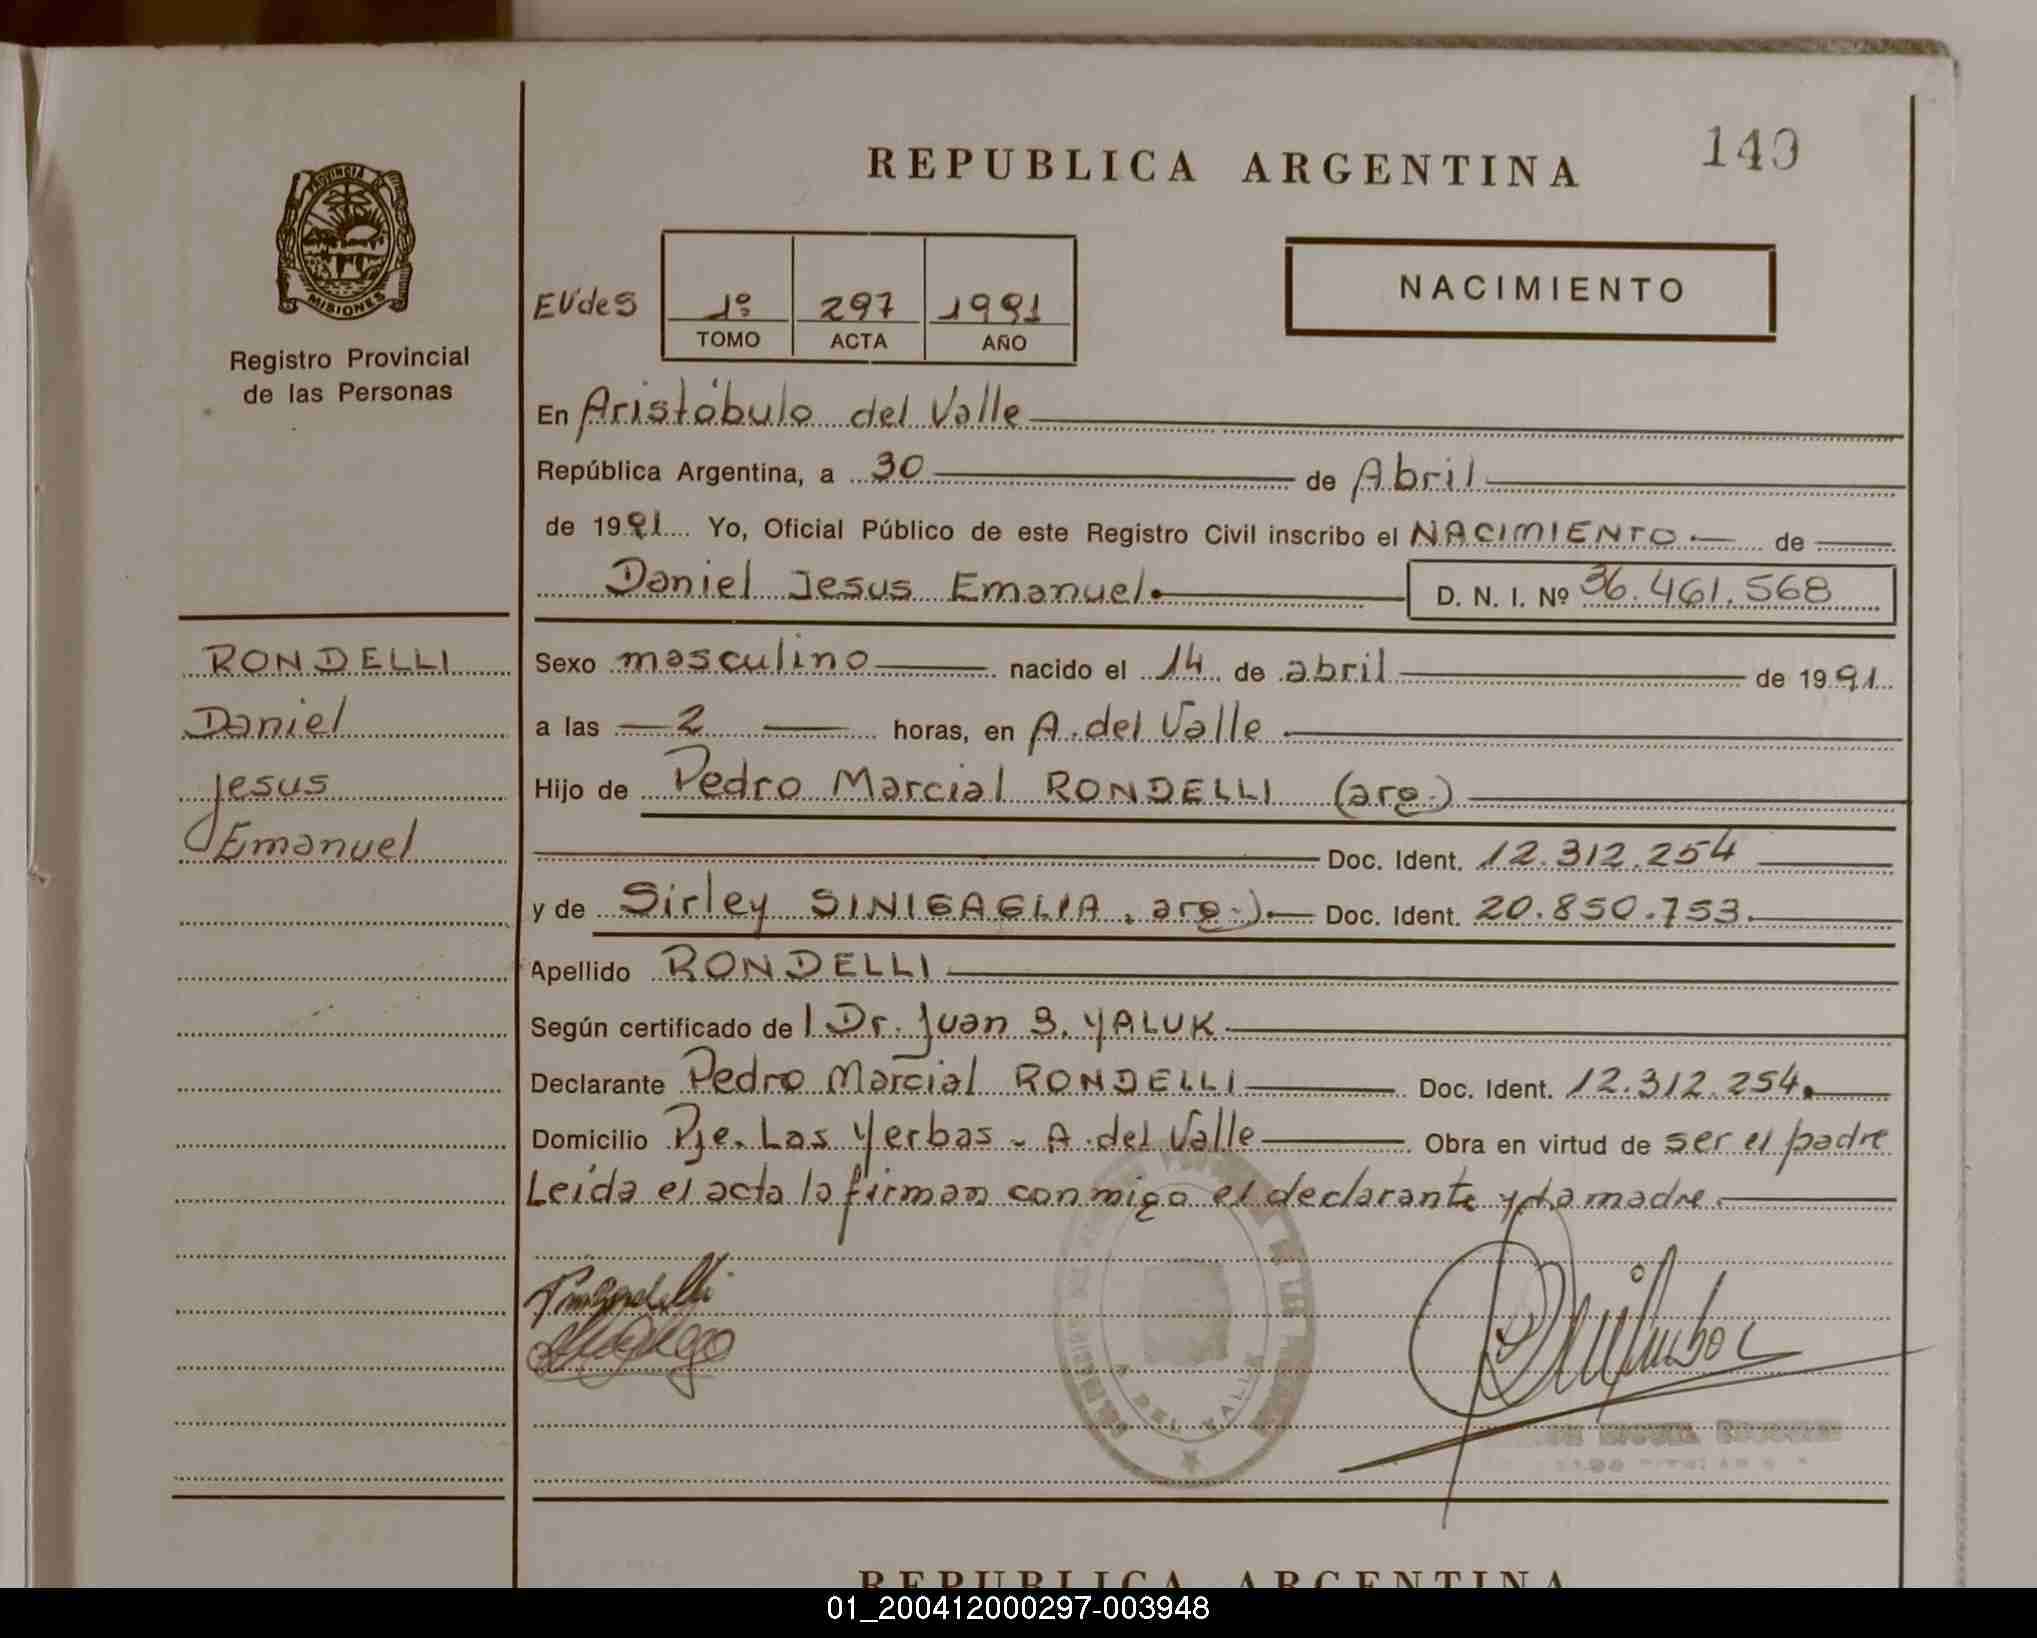 REPUBLICA ARGENTINA
149
PROVINCIA DE
MISIONES
Registro Provincial
de las Personas
EUdeS
1º 297 1991
TOMO ACTA AÑO
NACIMIENTO
En Aristóbulo del Valle
República Argentina, a 30 de Abril
de 1991 Yo, Oficial Público de este Registro Civil inscribo el NACIMIENTO de
Daniel Jesus Emanuel. D. N. I. Nº 36.461.568
RONDELLI
Daniel
Jesus
Emanuel
Sexo masculino nacido el 14 de abril de 1991
a las 2 horas, en A. del Valle
Hijo de Pedro Marcial RONDELLI (arg.)
Doc. Ident. 12.312.254
y de Sirley SINIGAGLIA, arg.) Doc. Ident. 20.850.753.
Apellido RONDELLI
Según certificado de l Dr. Juan S. YALUK
Declarante Pedro Marcial RONDELLI Doc. Ident. 12.312.254.
Domicilio Pje. Las Yerbas - A. del Valle Obra en virtud de ser el padre
Leída el acta la firman conmigo el declarante y la madre.
A DEL VALLE
REPUBLICA ARGENTINA
01_200412000297-003948